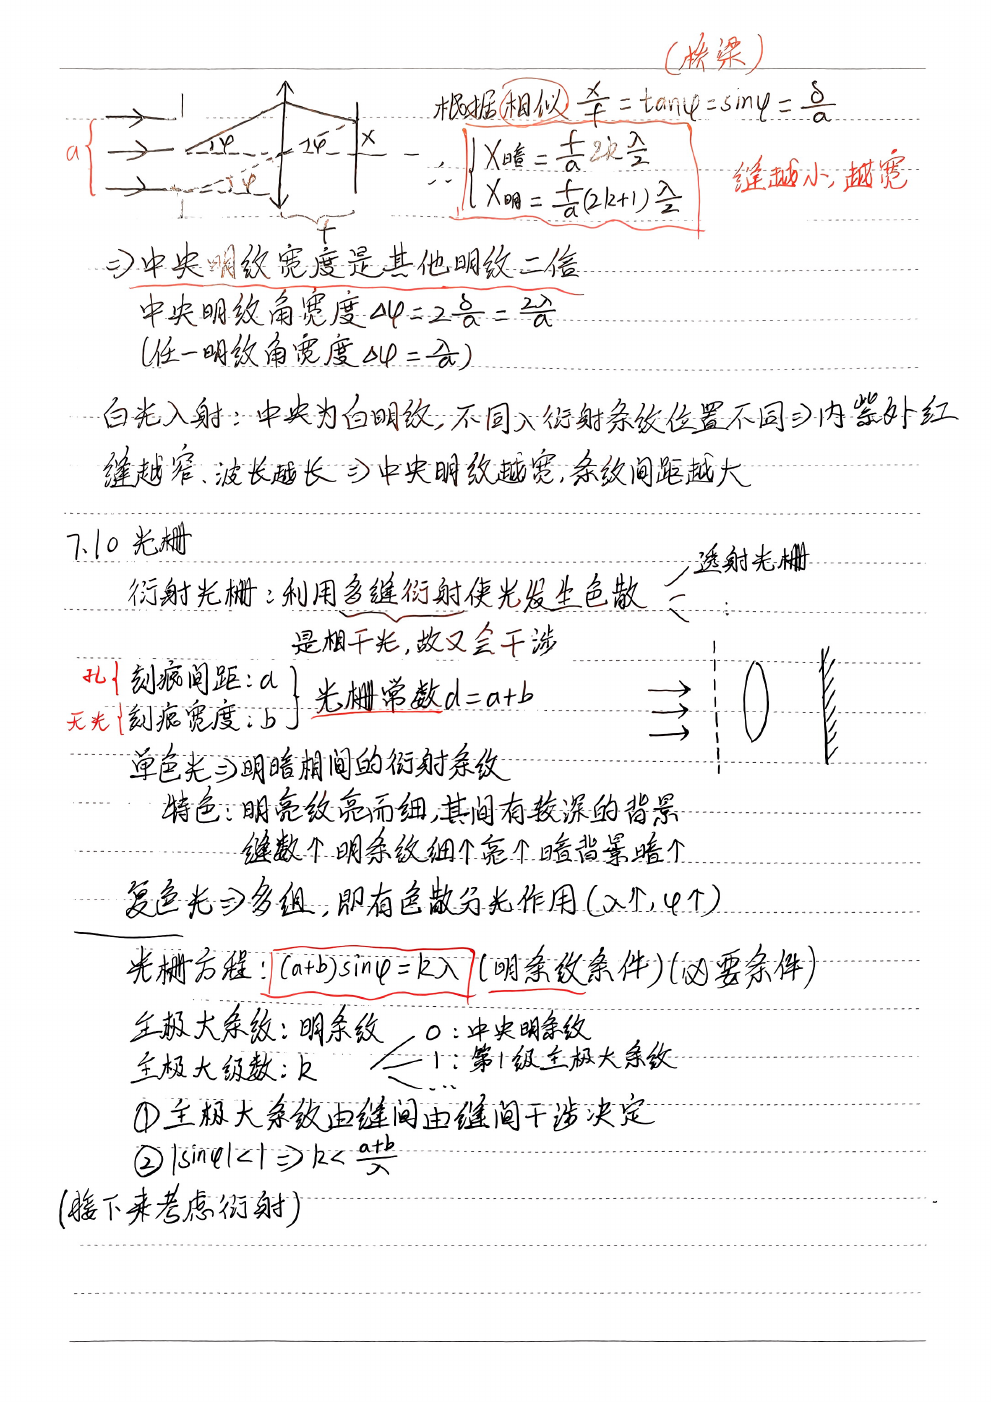 (桥梁)
根据相似 x/f = tanφ = sinφ = δ/a
a φ φ φ x f
∴ { x暗 = f/a 2k λ/2
x明 = f/a (2k+1) λ/2
缝越小,越宽
⇒ 中央明纹宽度是其他明纹二倍
中央明纹角宽度 Δφ = 2 δ/a = 2λ/a
(任一明纹角宽度 Δφ = λ/a)
白光入射: 中央为白明纹, 不同λ衍射条纹位置不同 ⇒ 内紫外红
缝越窄、波长越长 ⇒ 中央明纹越宽, 条纹间距越大
7.10 光栅
透射光栅
衍射光栅: 利用多缝衍射使光发生色散
⋮
是相干光, 故又会干涉
孔{ 刻痕间距: a
无光{ 刻痕宽度: b } 光栅常数 d = a+b
单色光 ⇒ 明暗相间的衍射条纹
特色: 明亮纹亮而细, 其间有较深的背景
缝数↑ 明条纹细↑ 亮↑ 暗背景暗↑
复色光 ⇒ 多组, 即有色散分光作用 (λ↑, φ↑)
光栅方程: (a+b)sinφ = kλ (明条纹条件) (必要条件)
主极大条纹: 明条纹 0: 中央明条纹
主极大级数: k 1: 第1级主极大条纹
...
① 主极大条纹由缝间由缝间干涉决定
② |sinφ| < 1 ⇒ k < (a+b)/λ
(接下来考虑衍射)